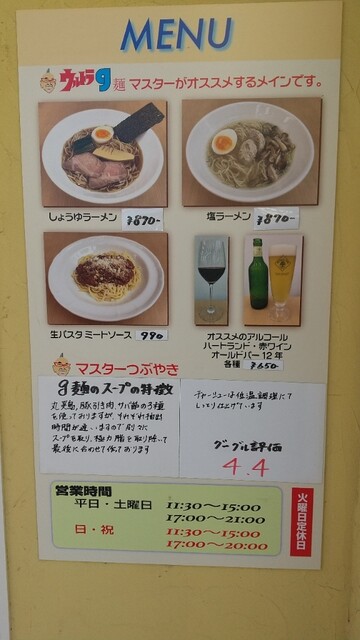 MENU
ウルトラg麺 マスターがオススメするメインです。
しょうゆラーメン ¥870-
塩ラーメン ¥870-
生パスタミートソース 990
オススメのアルコール
ハートランド・赤ワイン
オールドパー12年
各種 ¥650-
マスターつぶやき
g麺のスープの特徴
丸天鶏、豚引き肉、サバ節の3種
を使っておりますが、それぞれ抽出
時間が違いますので別々に
スープを取り、極力脂を取り除いて
最後に合わせて作っております
チャーシューは低温調理にて
しっとり仕上げています
グーグル評価
4.4
営業時間
平日・土曜日 11:30～15:00
17:00～21:00
日・祝 11:30～15:00
17:00～20:00
火曜日定休日